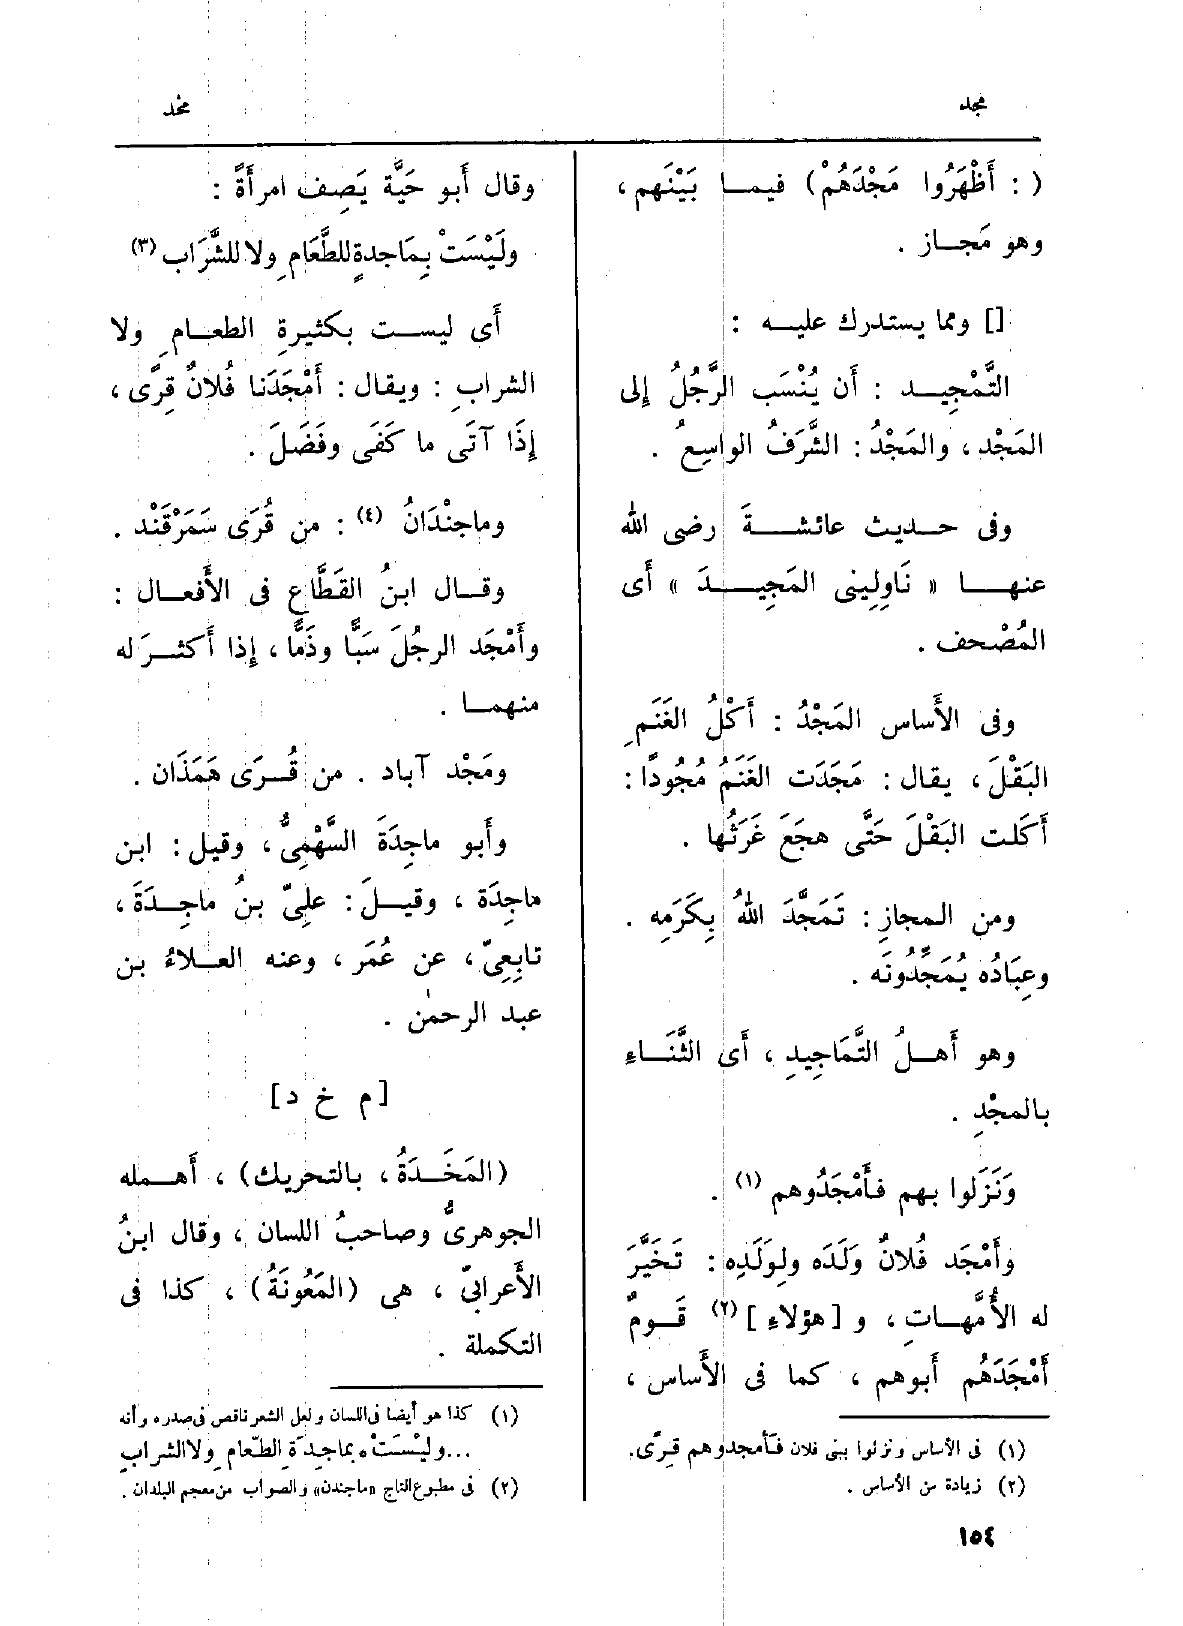 مجد
مخد
( : أَظْهَرُوا مَجْدَهُمْ) فيمـا بَيْنَهم ،
وهو مَجـاز .
[] ومما يستدرك عليـه :
التَّمْجِيـد : أَن يُنْسَب الرَّجُلُ إِلى
المَجْد ، والمَجْدُ : الشَّرَفُ الواسِعُ .
وفى حـديث عائشـةَ رضى الله
عنهـا « نَاوِلِينى المَجِيـدَ » أَى
المُصْحف .
وفى الأَساس المَجْدُ : أَكْلُ الغَنَمِ
البَقْلَ ، يقال : مَجَدَت الغَنَمُ مُجُودًا :
أَكَلت البَقْلَ حَتَّى هجَعَ غَرَثُها .
ومن المجازِ : تَمَجَّدَ اللهُ بِكَرَمِه .
وعِبَادُه يُمَجِّدُونَه .
وهو أَهـلُ التَّمَاجِيدِ ، أَى الثَّنَـاءِ
بالمجْدِ .
وَنَزَلوا بهم فأَمْجَدُوهم (١) .
وأَمْجَد فُلانٌ وَلَدَه ولِوَلَدِه : تَخَيَّرَ
له الأُمَّهـاتِ ، و [هؤلاءِ] (٢) قَـومٌ
أَمْجَدَهُم أَبوهم ، كما فى الأَساس ،
(١) فى الأساس ونزلوا ببنى فلان فأمجدوهم قِرًى.
(٢) زيادة من الأساس .
وقال أَبو حَيَّة يَصِف امرأَةً :
ولَيْسَتْ بِمَاجدةٍ للطَّعَامِ ولا للشَّرَاب (٣)
أَى ليسـت بكثيرةِ الطعـامِ ولا
الشرابِ : ويقال : أَمْجَدَنا فُلانٌ قِرًى ،
إِذَا آتَى ما كَفَى وفَضَلَ .
وماجنْدَانُ (٤) : من قُرَى سَمَرْقَنْد .
وقـال ابنُ القَطَّاعِ فى الأَفعـال :
وأَمْجَد الرجُلَ سَبًّا وذَمًّا ، إِذا أَكثـرَ له
منهمـا .
ومَجْد آباد . من قُـرَى هَمَذَان .
وأَبو ماجِدَةَ السَّهْمِىُّ ، وقيل : ابن
ماجِدَة ، وقيـلَ : علِىّ بنُ ماجِـدَةَ ،
تابِعِىّ ، عن عُمَر ، وعنه العـلاءُ بن
عبد الرحمٰن .
[م خ د]
(المَخَـدَةُ ، بالتحريك) ، أَهـمله
الجوهرىُّ وصاحبُ اللسان ، وقال ابنُ
الأَعرابىّ ، هى (المَعُونَةُ) ، كذا فى
التكملة .
(١) كذا هو أيضا فى اللسان ولعل الشعر ناقص فى صدره وأنه
...ولَيْسَتْ • بماجِدَة الطّعامِ ولا الشرابِ
(٢) فى مطبوع التاج «ماجندن» والصواب من معجم البلدان .
١٥٤